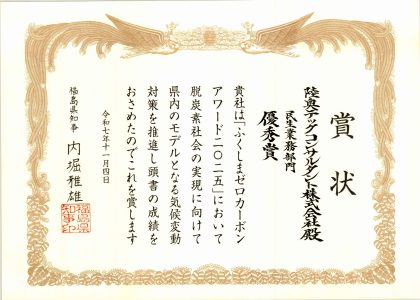 賞状
陸奥テックコンサルタント株式会社殿
民生業務部門
優秀賞
貴社は「ふくしまゼロカーボン
アワード二〇二五」において
脱炭素社会の実現に向けて
県内のモデルとなる気候変動
対策を推進し頭書の成績を
おさめたのでこれを賞します
令和七年十一月四日
福島県知事 内堀雅雄
福島県知事印